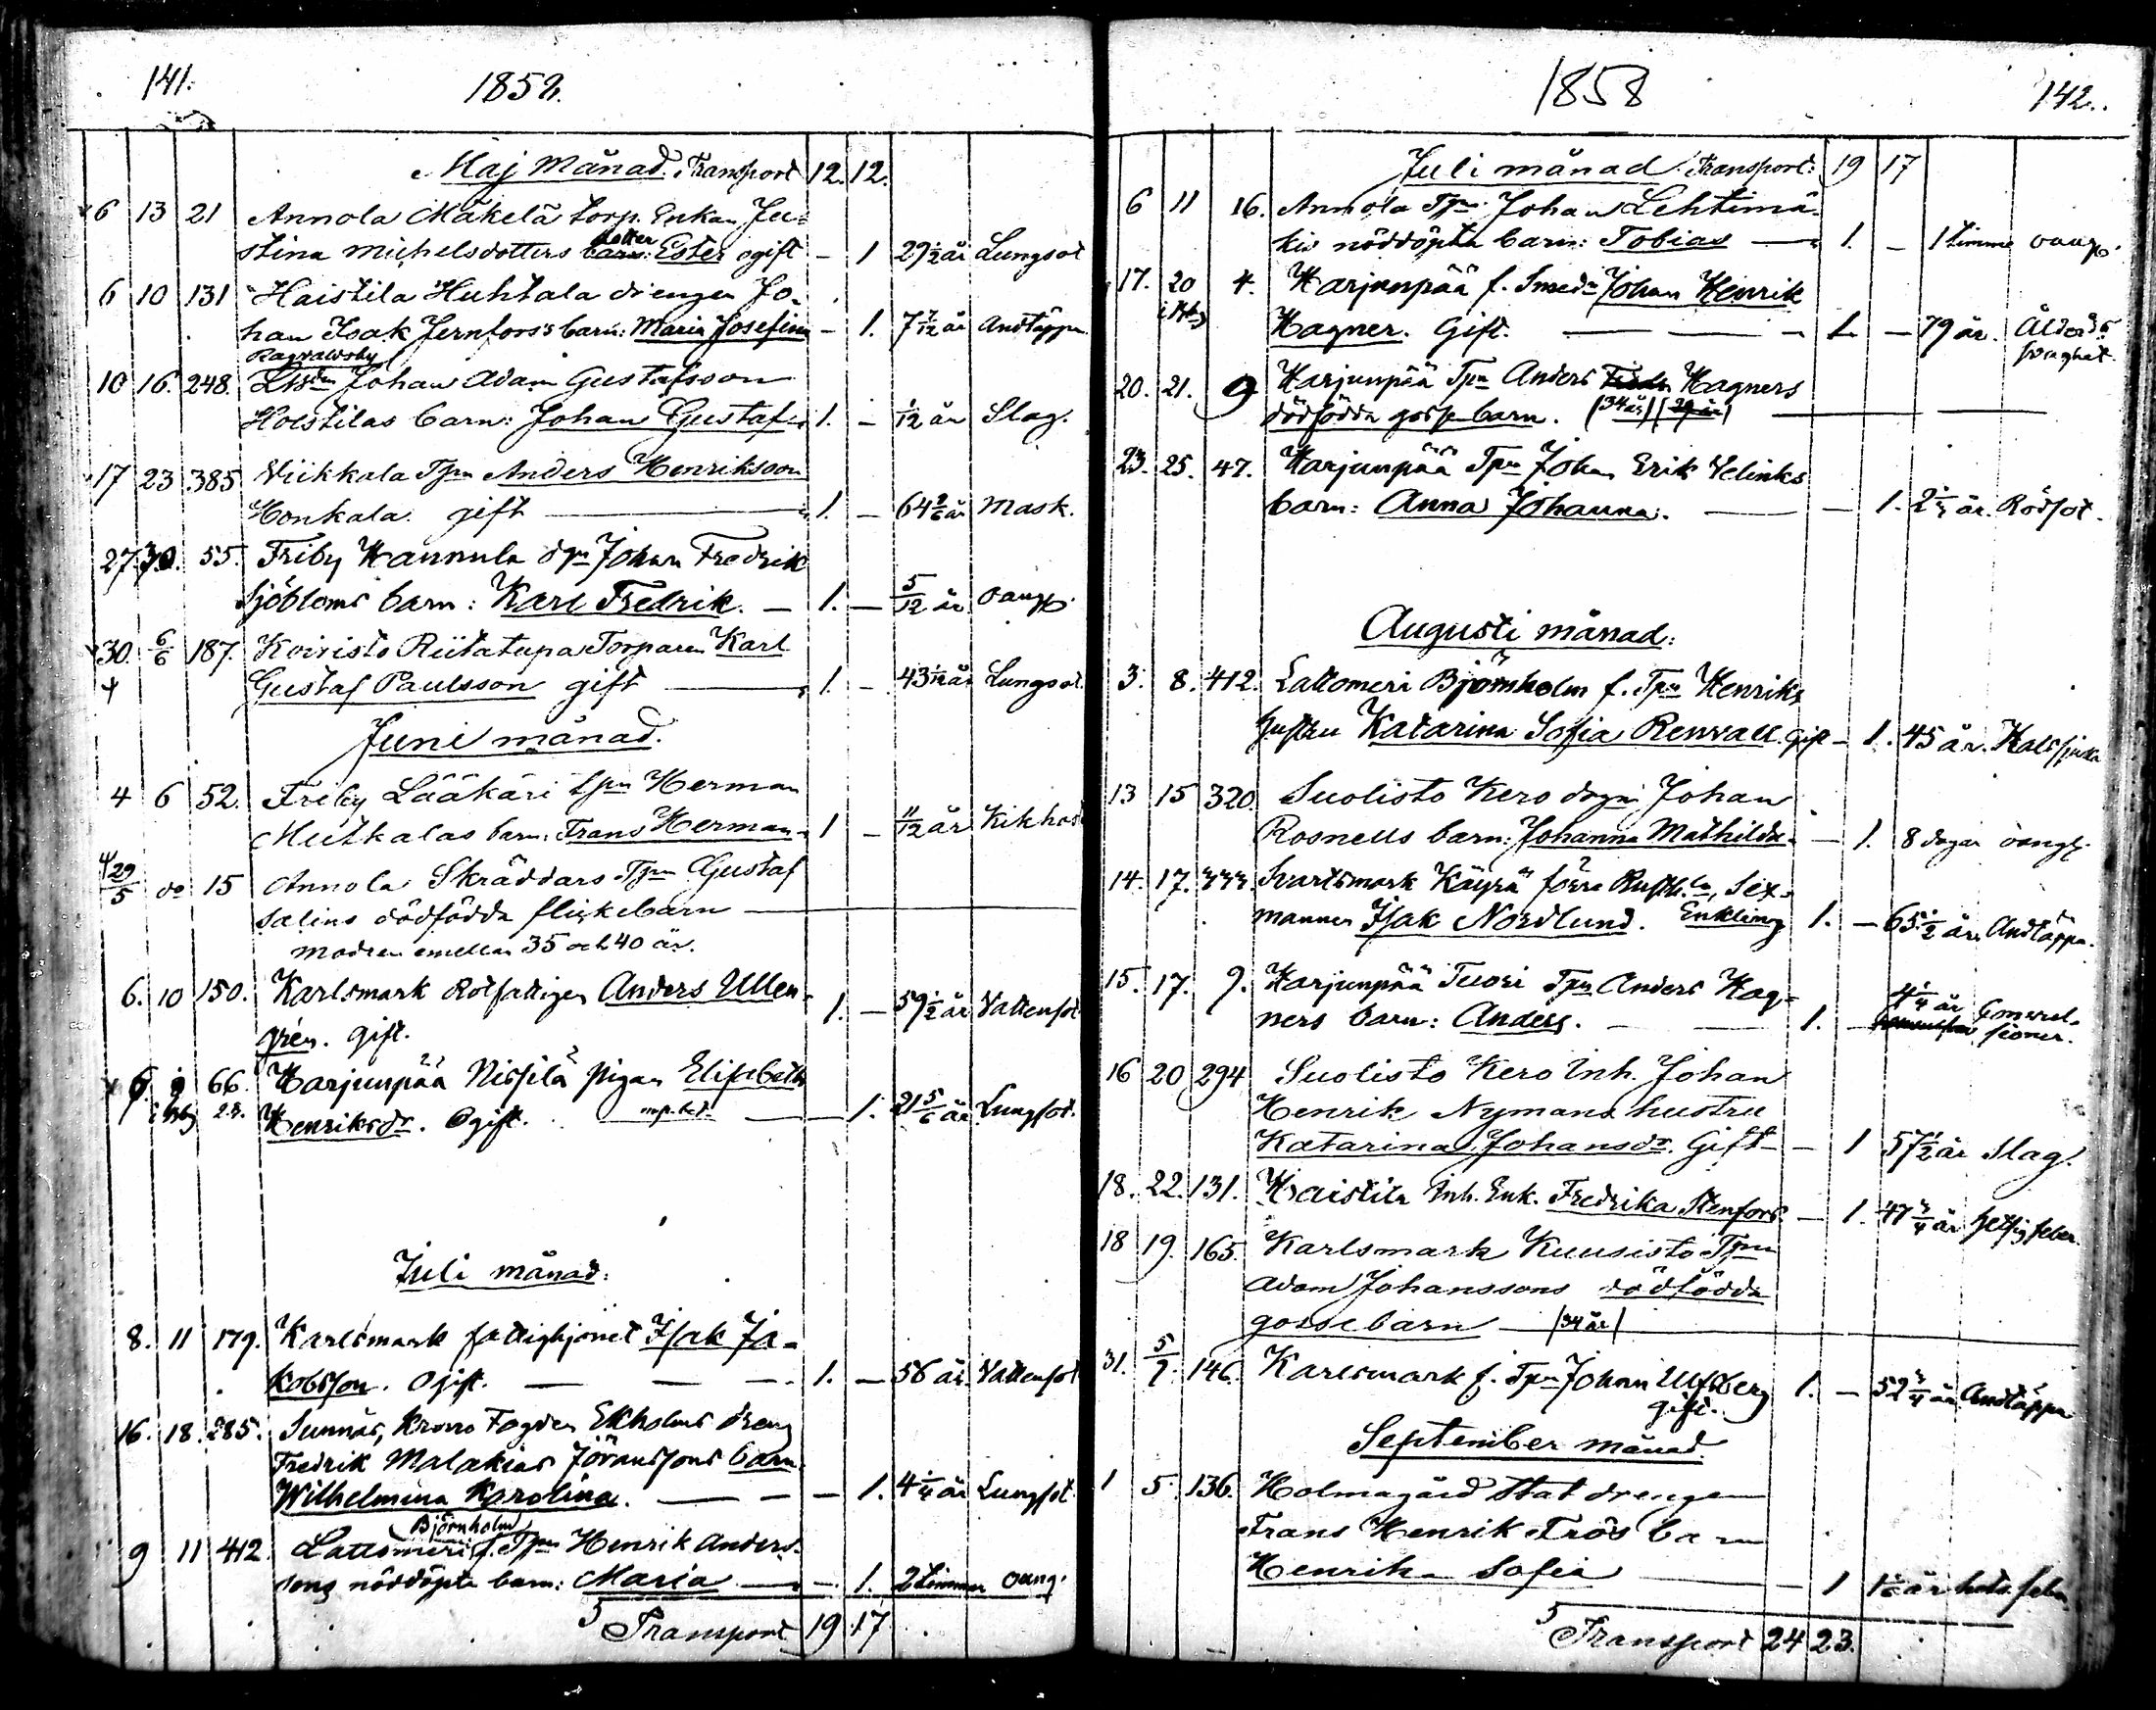 141.
1858.
Maj Månad. Transport 12. 12.
6 13 21 Annola Mäkelä torp. Enkan Ju-
dotter
stina Michelsdotters barn: Ester ogift - 1 29 1/2 år Lungsot
6 10 131 Haistila Huhtala drengen Jo-
han Isak Jernfors's barn: Maria Josefina - 1. 7 7/12 år Andtäppa
Ragvaldsby
10 16. 248. Johan Adam Gustafsson
Holstilas barn: Johan Gustaf 1. - 1/12 år Slag.
17 23 385 Viikkala Tpn Anders Henriksson
Honkala. gift 1. - 64 år Mask.
27. 30. 55. Friby Hannula Johan Fredrik
Sjöbloms barn: Karl Fredrik. - 1. - 5/12 år oangf.
30. 6/6 187. Koivisto Riitatupa Torparen Karl
Gustaf Paulsson gift 1. - 43 1/12 år Lungsot.
Juni månad.
4 6 52. Friby Lääkäri tpn Herman
Mutkalas barn: Frans Herman 1 - 11/12 år Kikhost
29/5 do 15 Annola Skräddars Tpn Gustaf
Salins dödfödda flickebarn
modren emellan 35 och 40 år.
6. 10 150. Karlsmark Rotfattigen Anders Ullen-
gren. gift. 1. - 59 1/2 år Vattensot
6 9 66. Harjunpää Nissilä pigan Elisabeth
Henriksdr. Ogift. - 1. 21 5/6 år Lungsot.
Juli månad:
8. 11 179. Karlsmark fattighjonet Isak Ja-
kobsson. Ogift. 1. - 56 år. Vattensot
16. 18. 285. Sunnäs, Krono Fogden Ekholms dreng
Fredrik Malakias Jöranssons barn
Wilhelmina Karolina. - 1. 4 1/4 år Lungsot.
Björnholm
9 11 412. Lattomeri f. Tpn Henrik Anders-
sons nöddöpta barn: Maria - 1. 2 timmar oang.
Transport 19 17
1858
142.
Juli månad Transport: 19 17
6 11 16. Annola Tpn Johan Lehtimä-
kis nöddöpta barn: Tobias 1. - 1 timme oangf.
17. 20 4. Harjunpää f. Smedn Johan Henrik
Hagner. Gift. 1. - 79 år. Ålderd.
svaghet.
20. 21. 9 Harjunpää Tpn Anders Hagners
dödfödda gossebarn. (34 år)
23. 25. 47. Harjunpää Tpn Johan Erik Velinks
barn: Anna Johanna. - 1. 2 år. Rödsot.
Augusti månad:
3. 8. 412. Lattomeri Björnholm f. Tpn Henriks
hustru Katarina Sofia Renvall. Gift - 1. 45 år.
13 15 320. Suolisto Kero Johan
Rosnells barn: Johanna Mathilda. - 1. 8 dagar oangf.
14. 17. Svartsmark Käyrä förra Sex-
mannen Isak Nordlund. Enkling 1. - 65 1/2 år Andtäppa.
15. 17. 9. Harjunpää Tuori Tpn Anders Hag-
ners barn: Anders. 1. - 4 1/4 år
16 20 294 Suolisto Kero Inh. Johan
Henrik Nymans hustru
Katarina Johansdr. Gift - 1 57 1/2 år Slag.
18. 22. 131. Haistila Inh. Enk. Fredrika Stenfors - 1. 47 3/4 år Hetsig feber
18 19. 165. Karlsmark Kuusisto Tpn
Adam Johanssons dödfödda
gossebarn (34 år)
31. 5/9. 146. Karlsmark f. Tpn Johan Ulfsberg 1. - 52 3/4 år Andtäppa
gift.
September månad
1 5. 136. Holmagård Statdrengen
Frans Henrik Frös barn
Henrika Sofia - 1
Transport 24 23.